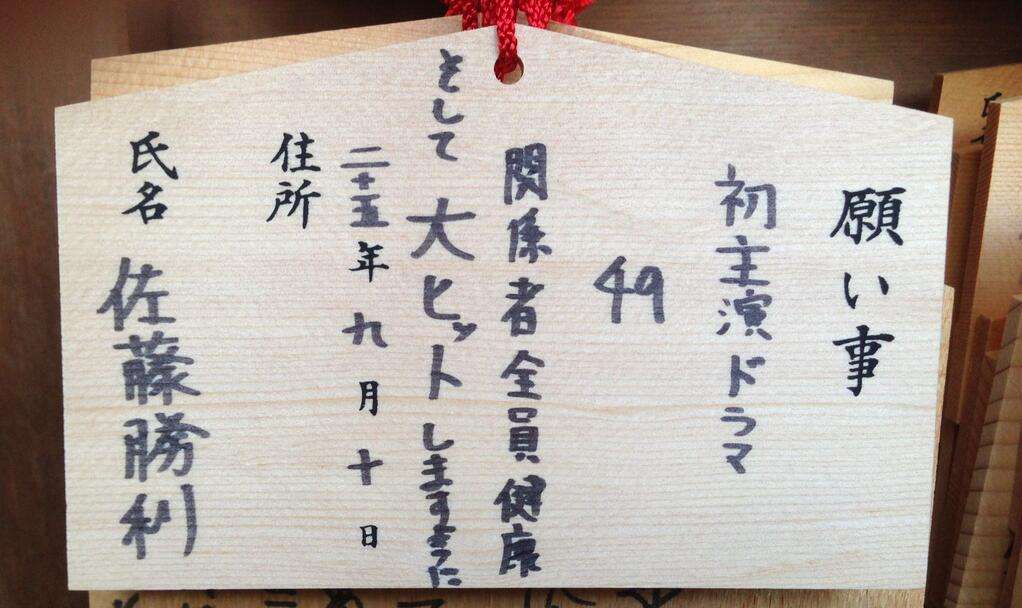 願い事
初主演ドラマ
49
関係者全員健康
そして大ヒットしますように
二十五年九月十日
住所
氏名 佐藤勝利